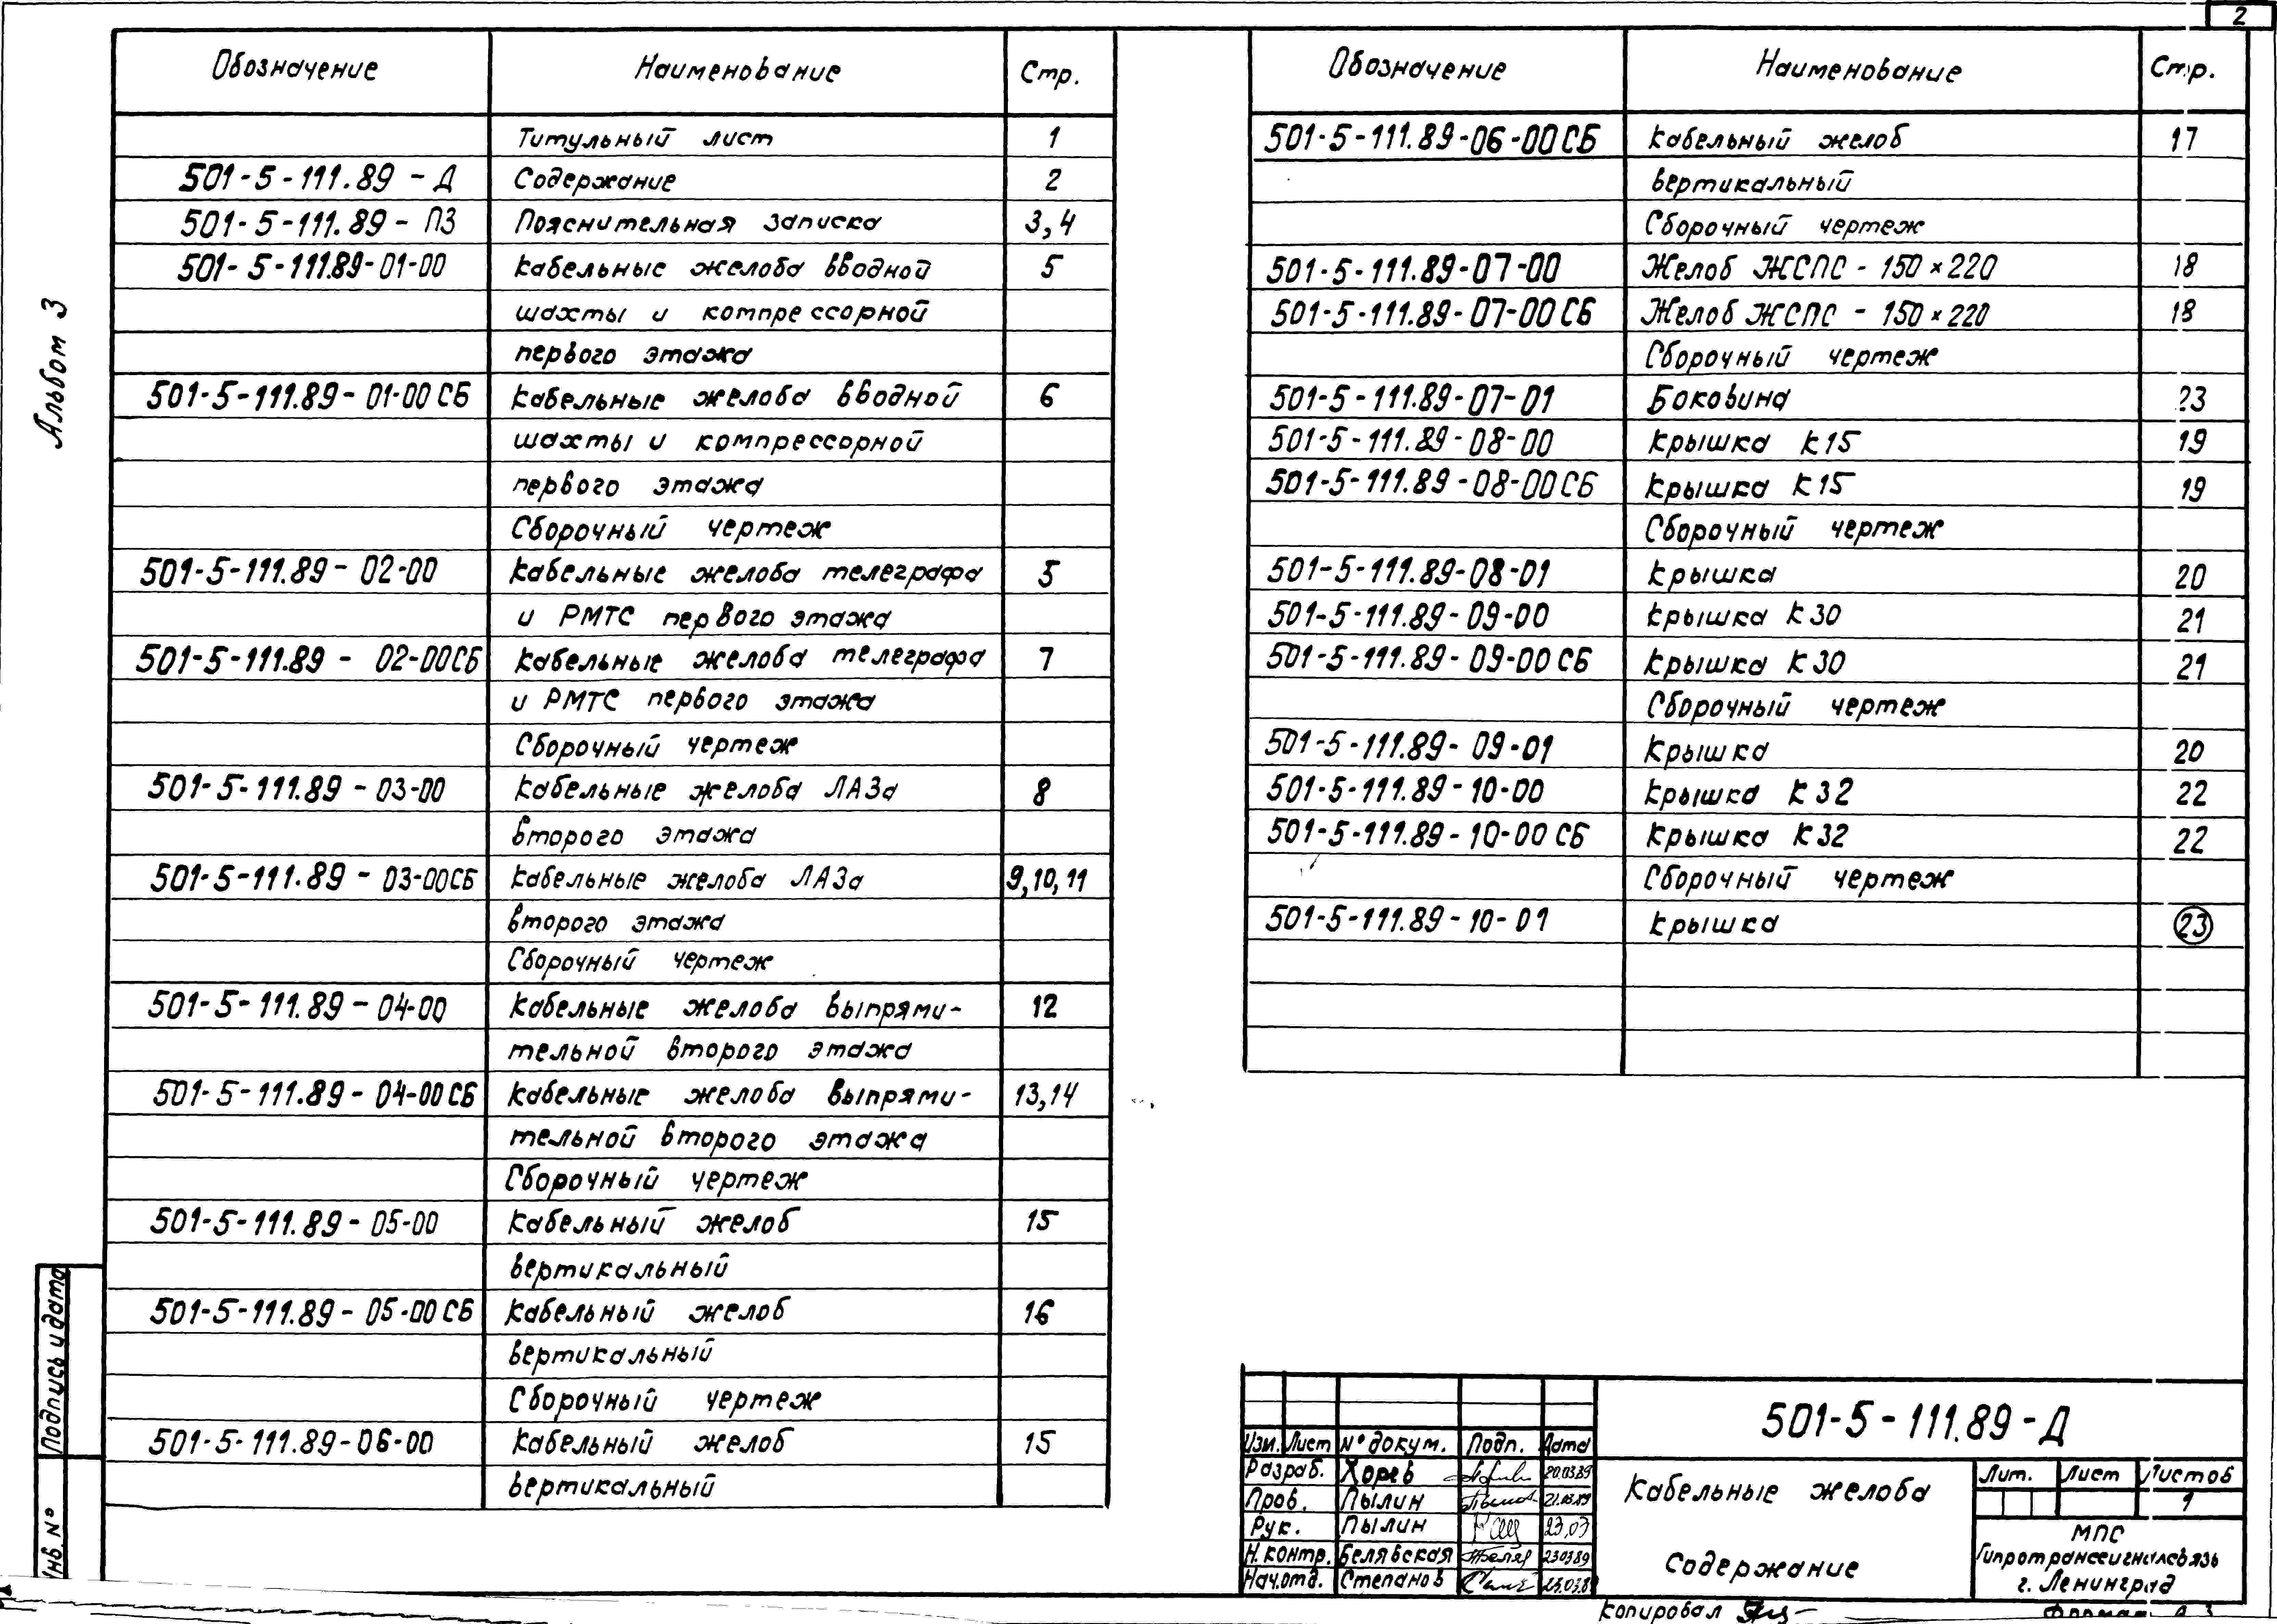 2
Альбом 3
Обозначение Наименование Стр.
Титульный лист 1
501-5-111.89-Д Содержание 2
501-5-111.89-ПЗ Пояснительная записка 3,4
501-5-111.89-01-00 Кабельные желоба вводной 5
шахты и компрессорной
первого этажа
501-5-111.89-01-00 СБ Кабельные желоба вводной 6
шахты и компрессорной
первого этажа
Сборочный чертеж
501-5-111.89-02-00 Кабельные желоба телеграфа 5
и РМТС первого этажа
501-5-111.89-02-00 СБ Кабельные желоба телеграфа 7
и РМТС первого этажа
Сборочный чертеж
501-5-111.89-03-00 Кабельные желоба ЛАЗа 8
второго этажа
501-5-111.89-03-00 СБ Кабельные желоба ЛАЗа 9,10,11
второго этажа
Сборочный чертеж
501-5-111.89-04-00 Кабельные желоба выпрями- 12
тельной второго этажа
501-5-111.89-04-00 СБ Кабельные желоба выпрями- 13,14
тельной второго этажа
Сборочный чертеж
501-5-111.89-05-00 Кабельный желоб 15
вертикальный
501-5-111.89-05-00 СБ Кабельный желоб 16
вертикальный
Сборочный чертеж
501-5-111.89-06-00 Кабельный желоб 15
вертикальный
Обозначение Наименование Стр.
501-5-111.89-06-00 СБ Кабельный желоб 17
вертикальный
Сборочный чертеж
501-5-111.89-07-00 Желоб ЖСПС - 150×220 18
501-5-111.89-07-00 СБ Желоб ЖСПС - 150×220 18
Сборочный чертеж
501-5-111.89-07-01 Боковина 23
501-5-111.89-08-00 Крышка К15 19
501-5-111.89-08-00 СБ Крышка К15 19
Сборочный чертеж
501-5-111.89-08-01 Крышка 20
501-5-111.89-09-00 Крышка К30 21
501-5-111.89-09-00 СБ Крышка К30 21
Сборочный чертеж
501-5-111.89-09-01 Крышка 20
501-5-111.89-10-00 Крышка К32 22
501-5-111.89-10-00 СБ Крышка К32 22
Сборочный чертеж
501-5-111.89-10-01 Крышка 23
Подпись и дата
Инв. №
501-5-111.89-Д
Изм. Лист № докум. Подп. Дата
Разраб. Хорев 20.03.89
Пров. Пылин 21.03.89
Рук. Пылин 23.03
Н.контр. Белявская 23.03.89
Нач.отд. Степанов 23.03.8
Кабельные желоба
Содержание
Лит. Лист Листов
1
МПС
Гипротранссигналсвязь
г. Ленинград
Копировал
Формат А3